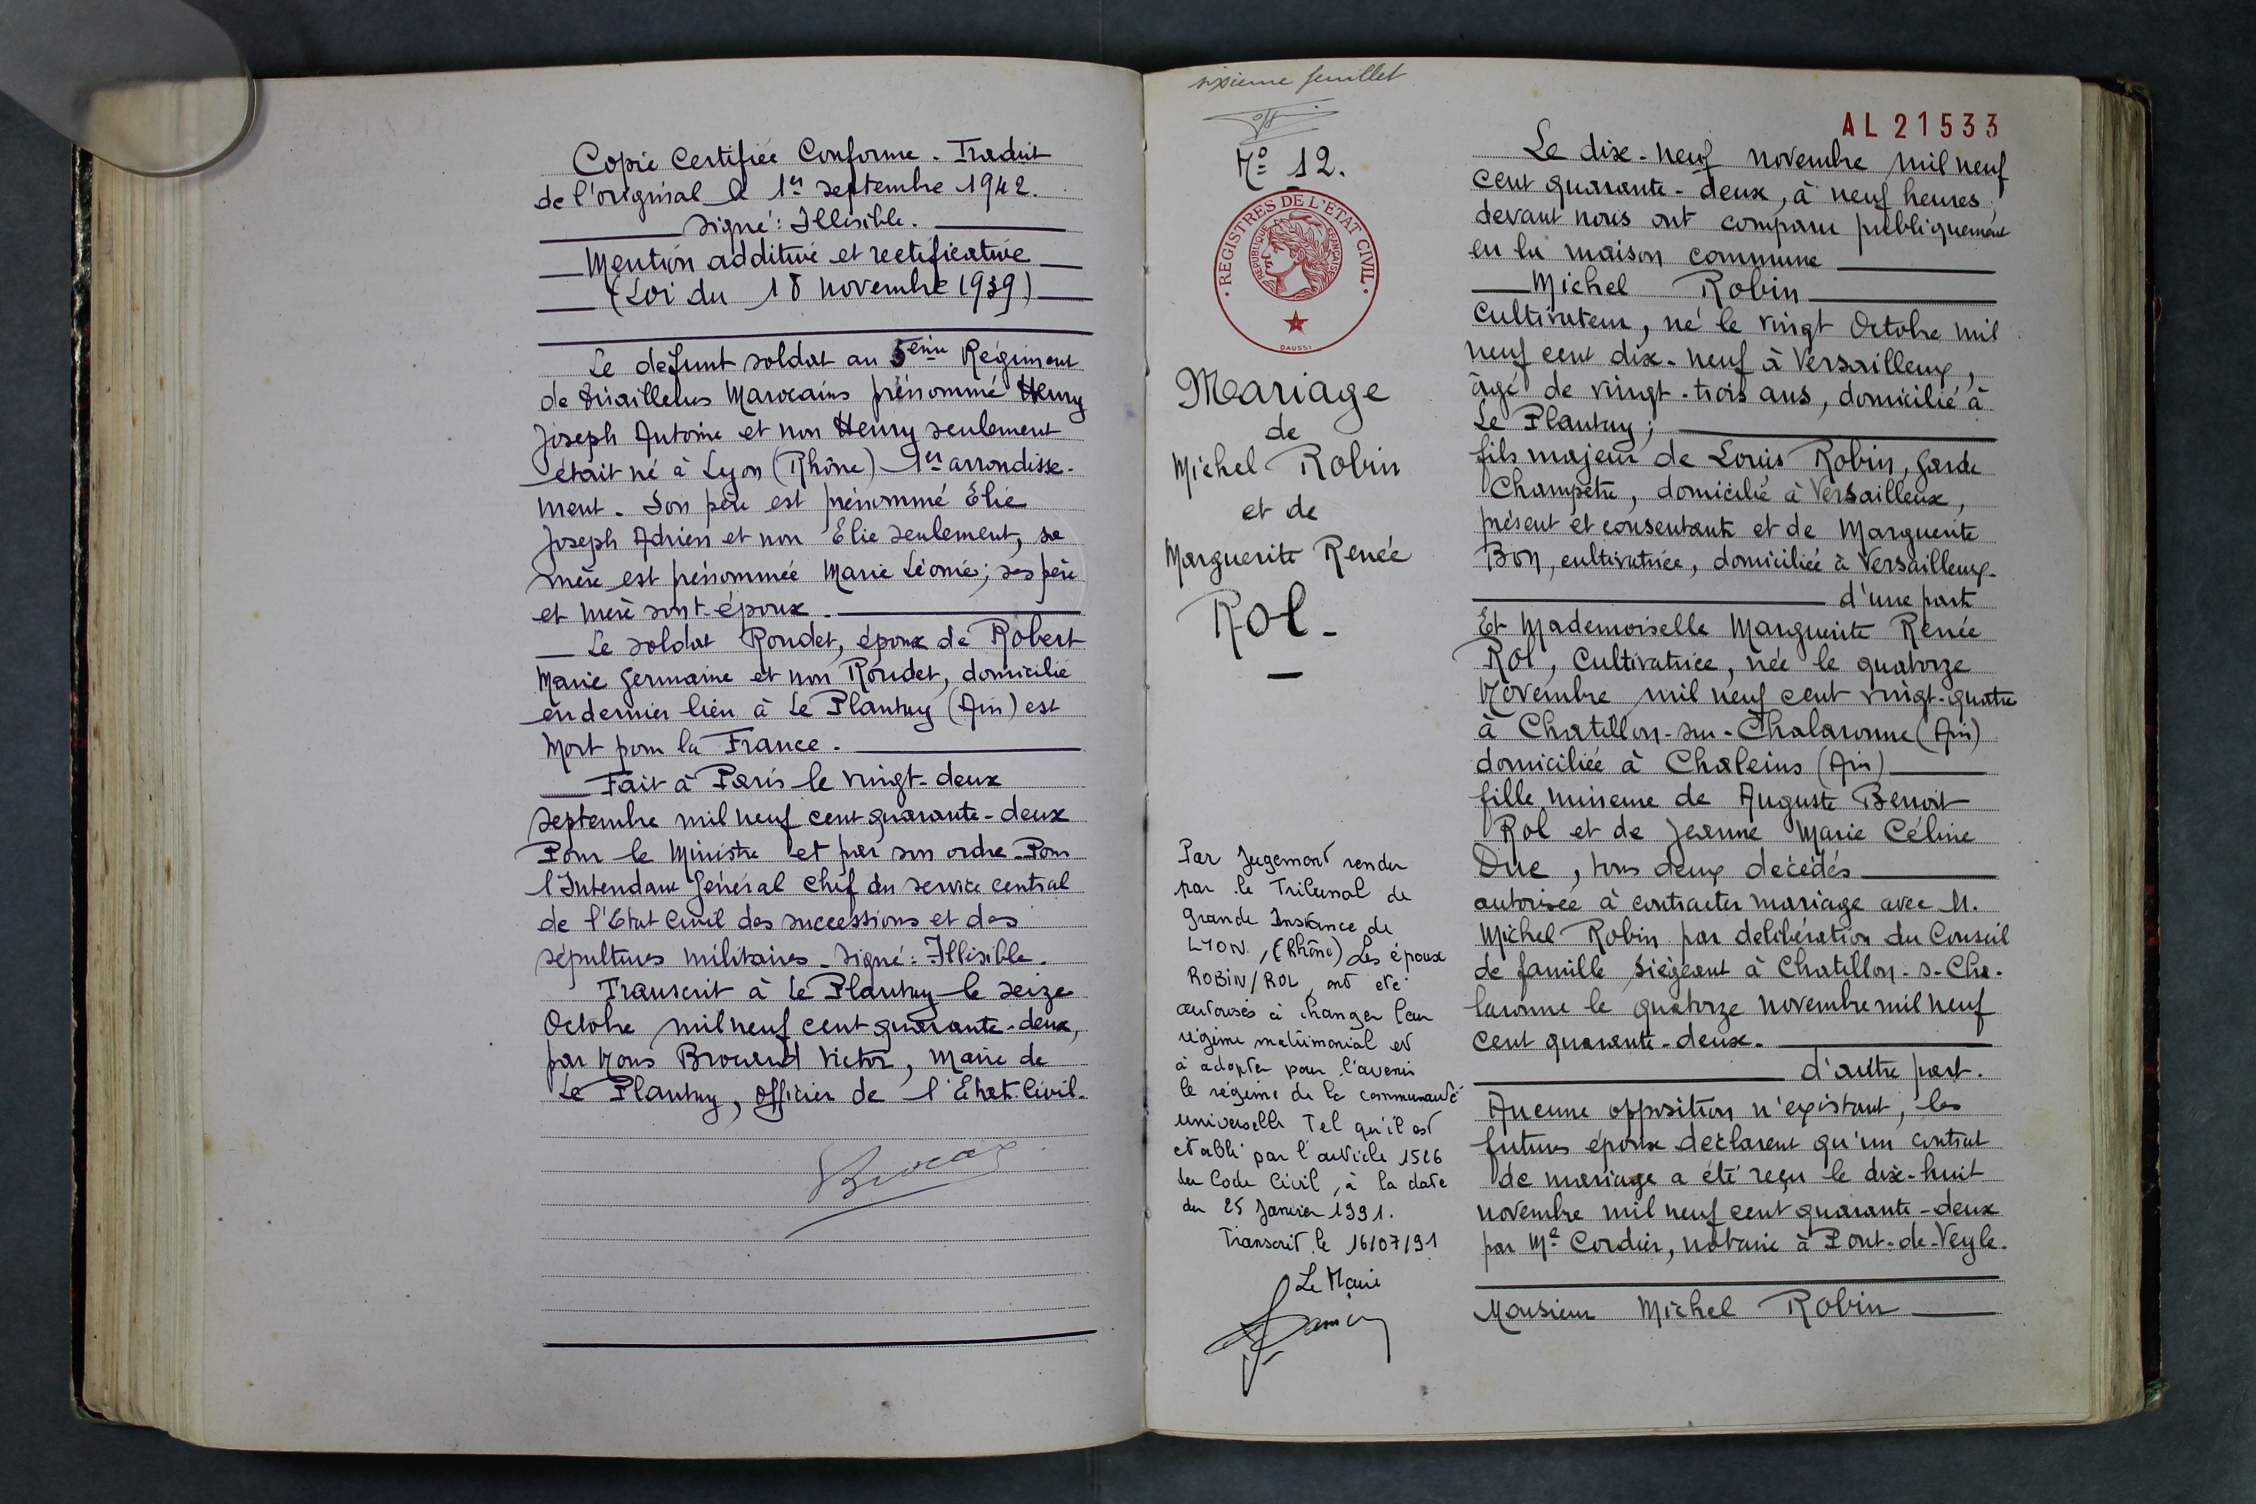 Copie Certifiée Conforme. Traduit
de l'original le 1er septembre 1942.
signé : Illisible.
Mention additive et rectificative
(Loi du 18 novembre 1939)
Le défunt soldat au 5ème Régiment
de tirailleurs Marocains prénommé Henry
Joseph Antoine et non Henry seulement
était né à Lyon (Rhône) 1er arrondisse-
ment. Son père est prénommé Elie
Joseph Adrien et non Elie seulement, sa
mère est prénommée Marie Léonie; ses père
et mère sont époux.
Le soldat Rondet, époux de Robert
Marie Germaine et non Rondet, domicilié
en dernier lieu à Le Plantay (Ain) est
Mort pour la France.
Fait à Paris le vingt-deux
septembre mil neuf cent quarante-deux
Pour le Ministre et par son ordre. Pour
l'Intendant Général Chef du service central
de l'Etat Civil des successions et des
sépultures militaires. Signé : Illisible.
Transcrit à Le Plantay le seize
Octobre mil neuf cent quarante-deux,
par Nous Brocard Victor, Maire de
Le Plantay, officier de l'Etat-Civil.
Brocard
sixième feuillet
No 12.
REGISTRES DE L'ETAT CIVIL
REPUBLIQUE FRANÇAISE
DAUSSI
Mariage
de
Michel Robin
et de
Marguerite Renée
Rol.
Par Jugement rendu
par le Tribunal de
Grande Instance de
LYON, (Rhône) Les époux
ROBIN/ROL, ont été
autorisés à changer leur
régime matrimonial et
à adopter pour l'avenir
le régime de la communauté
universelle Tel qu'il est
établi par l'article 1526
du Code Civil, à la date
du 25 Janvier 1991.
Transcrit le 16/07/91
Le Maire
AL 21533
Le dix-neuf novembre mil neuf
cent quarante-deux, à neuf heures,
devant nous ont comparu publiquement
en la maison commune
Michel Robin
Cultivateur, né le vingt Octobre mil
neuf cent dix-neuf à Versailleux,
âgé de vingt-trois ans, domicilié à
Le Plantay;
fils majeur de Louis Robin, garde
Champêtre, domicilié à Versailleux,
présent et consentant et de Marguerite
Bon, cultivatrice, domiciliée à Versailleux.
d'une part
Et Mademoiselle Marguerite Renée
Rol, Cultivatrice, née le quatorze
Novembre mil neuf cent vingt-quatre
à Chatillon-sur-Chalaronne (Ain)
domiciliée à Chaleins (Ain)
fille mineure de Auguste Benoit
Rol et de Jeanne Marie Céline
Duc, tous deux décédés
autorisée à contracter mariage avec M.
Michel Robin par délibération du Conseil
de famille siégeant à Chatillon-s-Cha-
laronne le quatorze novembre mil neuf
cent quarante-deux.
d'autre part.
Aucune opposition n'existant, les
futurs époux déclarent qu'un contrat
de mariage a été reçu le dix-huit
novembre mil neuf cent quarante-deux
par Me Cordier, notaire à Pont-de-Veyle.
Monsieur Michel Robin